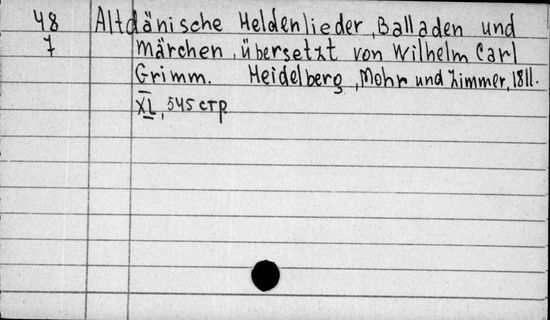 48 Altdänische Heldenlieder, Balladen und
7 märchen, übersetzt von Wilhelm Carl
Grimm. Heidelberg, Mohr und Zimmer, 1811.
XL, 545 стр